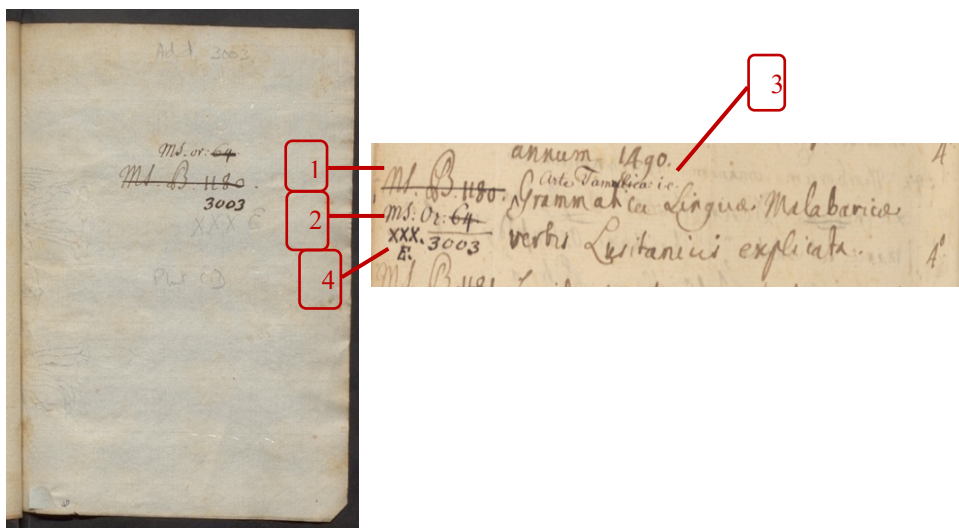 Add. 3003
Ms. or: 64
Ms. B. 1180.
3003
XXX E
1
2
3
4
annum 1490.
4
Ms. B. 1180.
Arte Tamulica i.e.
Grammatica Linguæ Malabaricæ
Ms. Or: 64
3003
XXX.
E.
verbis Lusitanicis explicata.
4
Ms. B. 1181